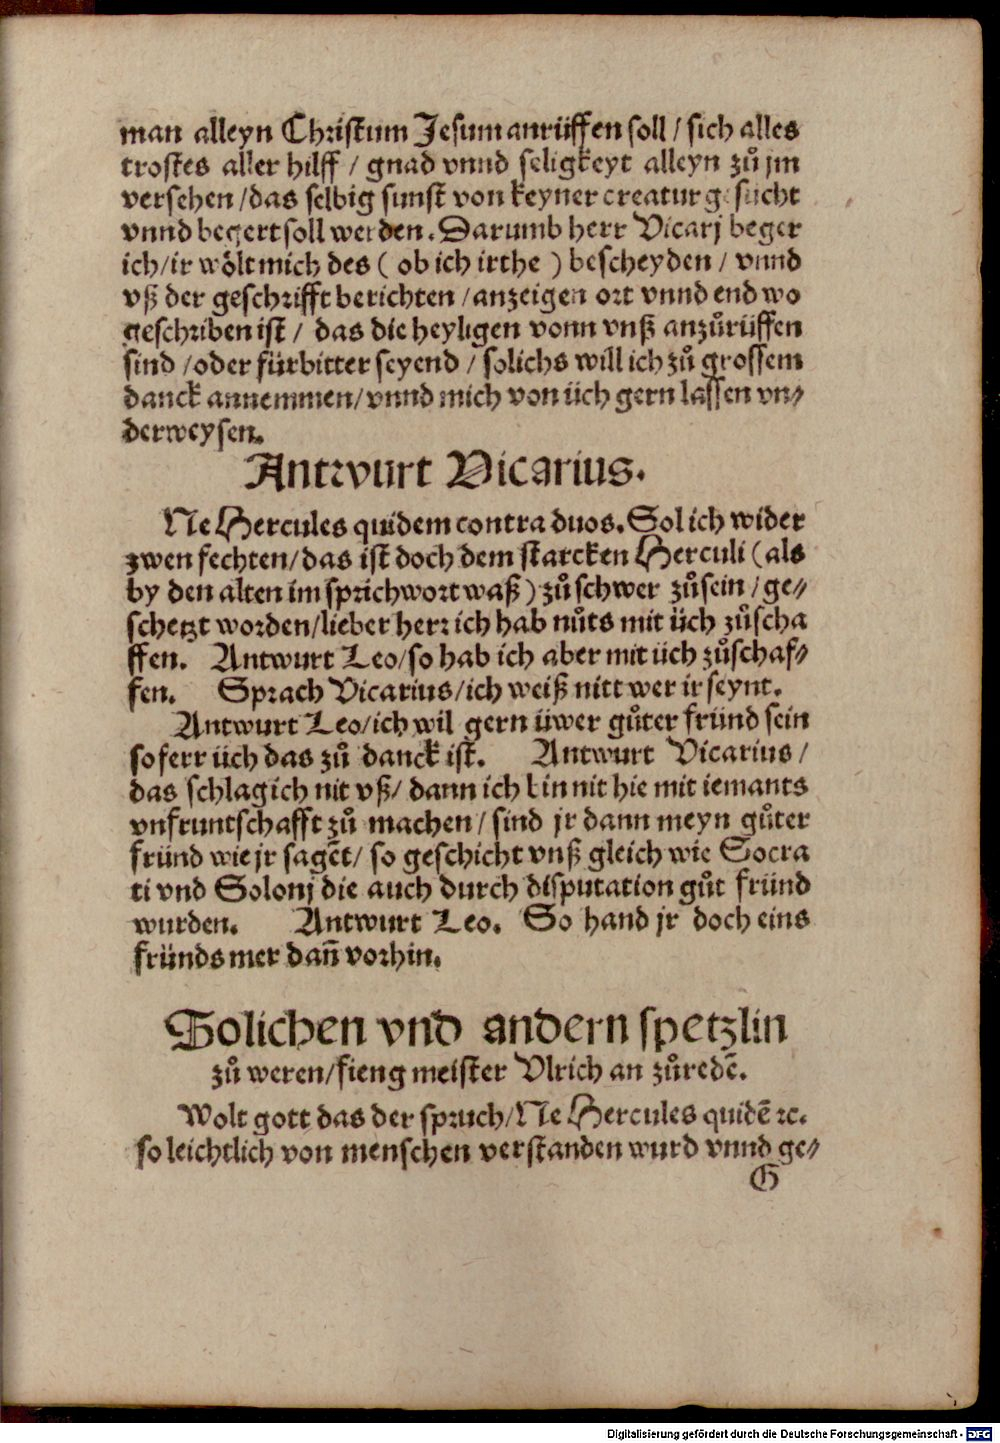 man alleyn Christum Jesum anrüffen soll / sich alles
trostes aller hilff / gnad vnnd seligkeyt alleyn zů jm
versehen / das selbig sunst von keyner creatur gesücht
vnnd begert soll werden. Darumb herr Vicarj beger
ich / ir wölt mich des ( ob ich irthe ) bescheyden / vnnd
vß der geschrifft berichten / anzeigen ort vnnd end wo
geschriben ist / das die heyligen vonn vnß anzůrüffen
sind / oder fürbitter seyend / solichs will ich zů grossem
danck annemmen / vnnd mich von üch gern lassen vn⸗
derweysen.
Antwurt Vicarius.
Ne Hercules quidem contra duos. Sol ich wider
zwen fechten / das ist doch dem starcken Herculi ( als
by den alten im sprichwort waß ) zů schwer zůsein / ge⸗
schetzt worden / lieber herr ich hab nůts mit üch zůscha
ffen. Antwurt Leo / so hab ich aber mit üch zůschaf⸗
fen. Sprach Vicarius / ich weiß nitt wer ir seynt.
Antwurt Leo / ich wil gern üwer gůter fründ sein
so ferr üch das zů danck ist. Antwurt Vicarius /
das schlag ich nit vß / dann ich bin nit hie mit iemants
vnfruntschafft zů machen / sind jr dann meyn gůter
fründ wie jr sagēt / so geschicht vnß gleich wie Socra
ti vnd Solonj die auch durch disputation gůt fründ
wurden. Antwurt Leo. So hand jr doch eins
fründs mer dañ vorhin.
Solichen vnd andern spetzlin
zů weren / fieng meister Vlrich an zůredē.
Wolt gott das der spruch / Ne Hercules quidē ꝛc.
so leichtlich von menschen verstanden wurd vnnd ge⸗
G
Digitalisierung gefördert durch die Deutsche Forschungsgemeinschaft - DFG